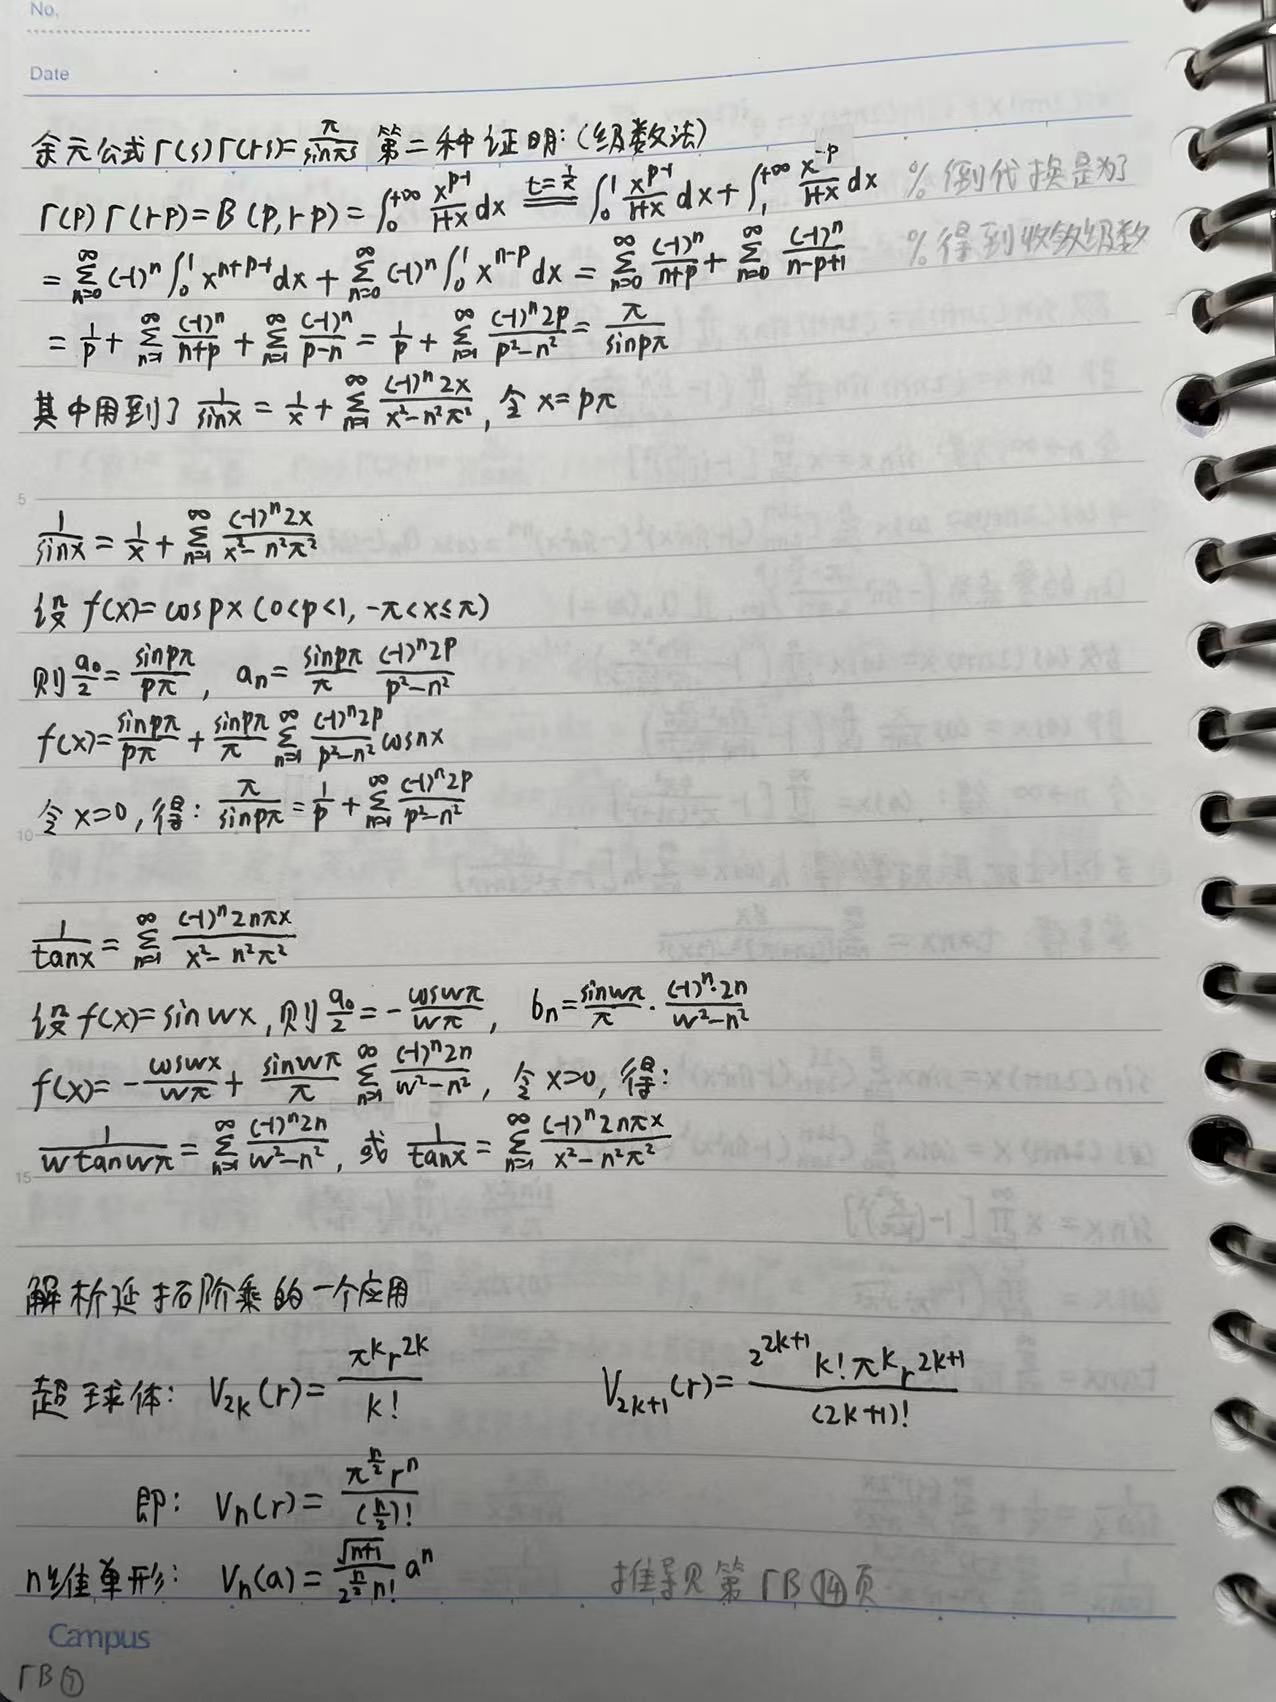 No.
Date
余元公式 Γ(s)Γ(1-s)=\frac{π}{sinπs} 第二种证明:(级数法)
Γ(p)Γ(1-p)=B(p,1-p)=\int_0^{+∞}\frac{x^{p-1}}{1+x}dx \xlongequal{t=\frac{1}{x}} \int_0^1\frac{x^{p-1}}{1+x}dx+\int_1^{+∞}\frac{x^{-p}}{1+x}dx % 倒代换是为了
=\sum_{n=0}^∞(-1)^n\int_0^1 x^{n+p-1}dx+\sum_{n=0}^∞(-1)^n\int_0^1 x^{n-p}dx=\sum_{n=0}^∞\frac{(-1)^n}{n+p}+\sum_{n=0}^∞\frac{(-1)^n}{n-p+1} % 得到收敛级数
=\frac{1}{p}+\sum_{n=1}^∞\frac{(-1)^n}{n+p}+\sum_{n=1}^∞\frac{(-1)^n}{p-n}=\frac{1}{p}+\sum_{n=1}^∞\frac{(-1)^n2p}{p^2-n^2}=\frac{π}{sinpπ}
其中用到了 \frac{1}{sinx}=\frac{1}{x}+\sum_{n=1}^∞\frac{(-1)^n2x}{x^2-n^2π^2}, 令 x=pπ
5
\frac{1}{sinx}=\frac{1}{x}+\sum_{n=1}^∞\frac{(-1)^n2x}{x^2-n^2π^2}
设 f(x)=cospx (0<p<1, -π<x≤π)
则 \frac{a_0}{2}=\frac{sinpπ}{pπ}, a_n=\frac{sinpπ}{π}\frac{(-1)^n2p}{p^2-n^2}
f(x)=\frac{sinpπ}{pπ}+\frac{sinpπ}{π}\sum_{n=1}^∞\frac{(-1)^n2p}{p^2-n^2}cosnx
令 x=0, 得: \frac{π}{sinpπ}=\frac{1}{p}+\sum_{n=1}^∞\frac{(-1)^n2p}{p^2-n^2}
10
\frac{1}{tanx}=\sum_{n=1}^∞\frac{(-1)^n2nπx}{x^2-n^2π^2}
设 f(x)=sinwx, 则 \frac{a_0}{2}=-\frac{coswπ}{wπ}, b_n=\frac{sinwπ}{π}·\frac{(-1)^n·2n}{w^2-n^2}
f(x)=-\frac{coswx}{wπ}+\frac{sinwπ}{π}\sum_{n=1}^∞\frac{(-1)^n2n}{w^2-n^2}, 令 x=0, 得:
\frac{1}{wtanwπ}=\sum_{n=1}^∞\frac{(-1)^n2n}{w^2-n^2}, 或 \frac{1}{tanx}=\sum_{n=1}^∞\frac{(-1)^n2nπx}{x^2-n^2π^2}
15
解析延拓阶乘的一个应用
超球体: V_{2k}(r)=\frac{π^kr^{2k}}{k!} V_{2k+1}(r)=\frac{2^{2k+1}k!π^kr^{2k+1}}{(2k+1)!}
即: V_n(r)=\frac{π^{\frac{n}{2}}r^n}{(\frac{n}{2})!}
n维单形: V_n(a)=\frac{\sqrt{n+1}}{2^{\frac{n}{2}}n!}a^n 推导见第ΓB⑭页
Campus
ΓB⑦